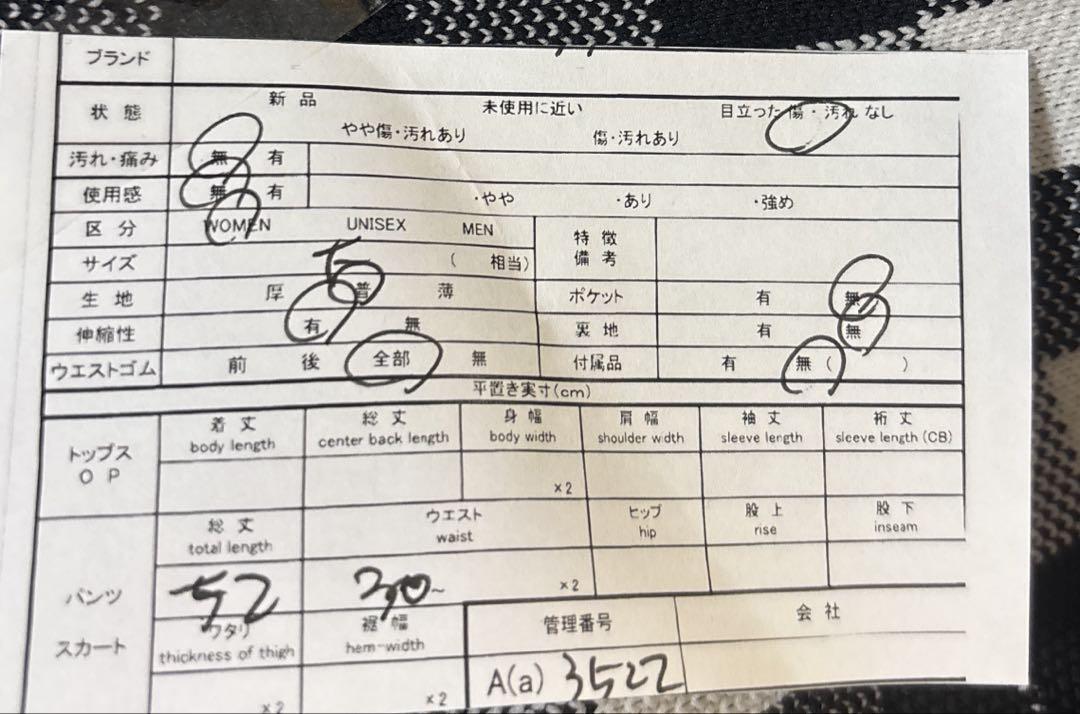 ブランド
状 態 新 品 未使用に近い 目立った傷・汚れ なし
やや傷・汚れあり 傷・汚れあり
汚れ・痛み 無 有
使用感 無 有 ・やや ・あり ・強め
区 分 WOMEN UNISEX MEN 特 徴
備 考
サイズ ( 相当)
生 地 厚 普 薄 ポケット 有 無
伸縮性 有 無 裏 地 有 無
ウエストゴム 前 後 全部 無 付属品 有 無 ( )
平置き実寸(cm)
トップス
O P
着 丈 総 丈 身 幅 肩 幅 袖 丈 裄 丈
body length center back length body width shoulder width sleeve length sleeve length (CB)
×2
パンツ
スカート
総 丈 ウエスト ヒップ 股 上 股 下
total length waist hip rise inseam
52 30~ ×2
ワタリ 裾 幅 管理番号 会 社
thickness of thigh hem-width
×2 ×2 A(a) 3522